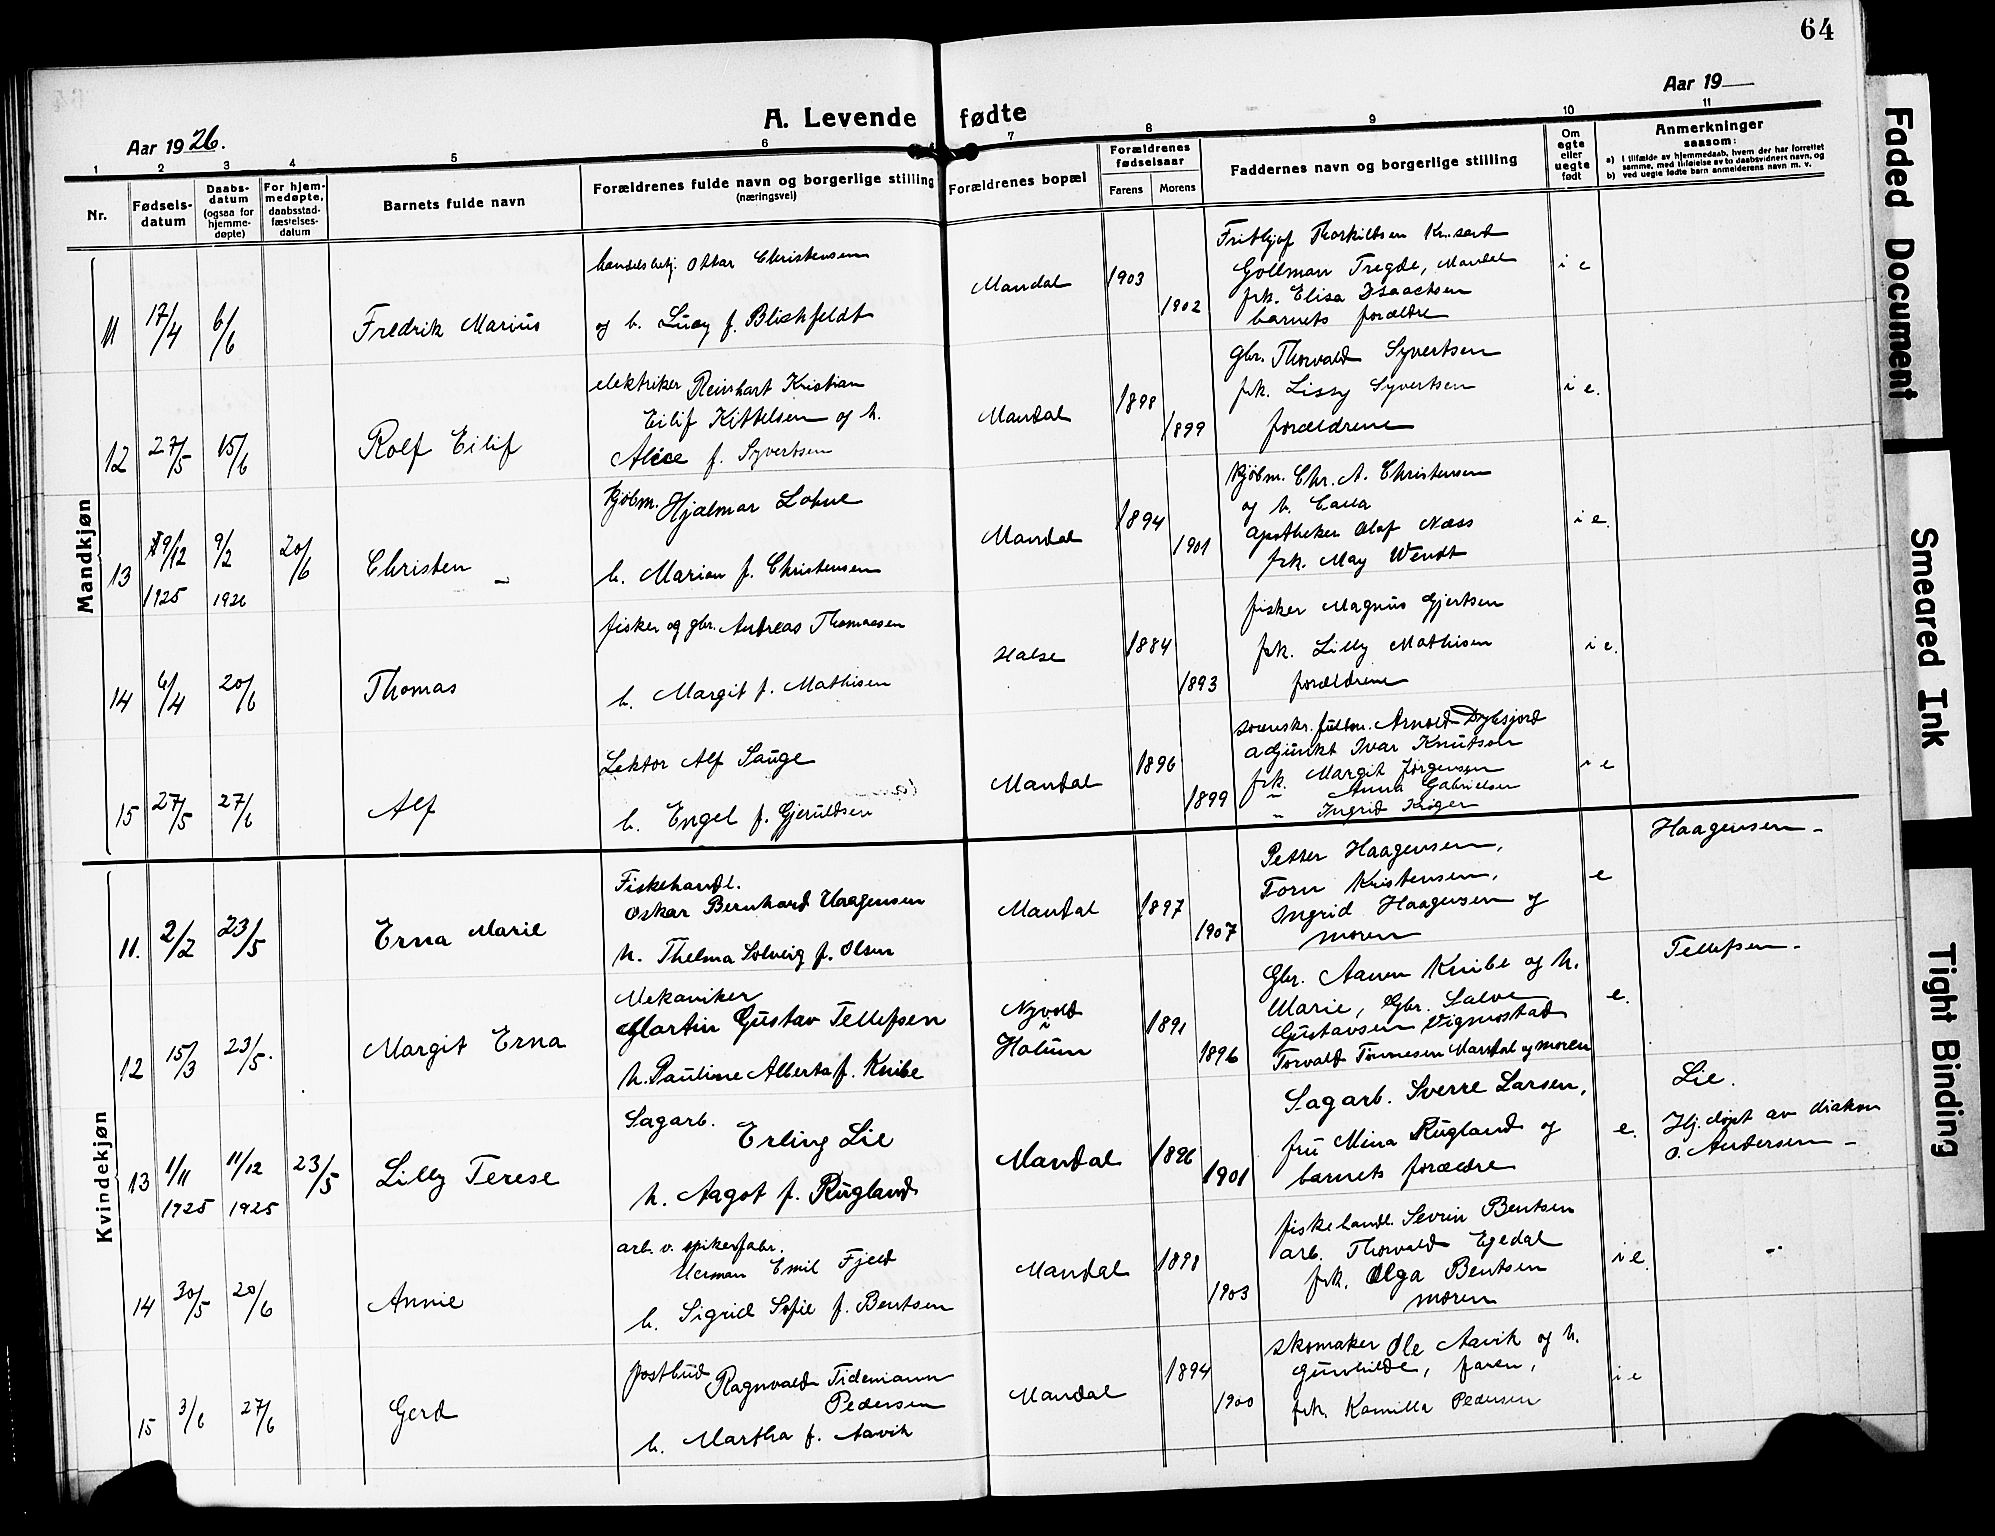 64
Aar 1926.
A. Levende fødte
Aar 19
1 2 3 4 5 6 7 8 9 10 11
Nr.
Fødsels-
datum
Daabs-
datum
(ogsaa for
hjemme-
døpte)
For hjem-
medøpte,
daabsstad-
fæstelses-
datum
Barnets fulde navn
Forældrenes fulde navn og borgerlige stilling
(næringsvei)
Forældrenes bopæl
Forældrenes
fødselsaar
Farens Morens
Faddernes navn og borgerlige stilling
Om
egte
eller
uegte
født
Anmerkninger
saasom:
a) I tilfælde av hjemmedaab, hvem der har forrettet
samme, med tilføielse av to daabsvidners navn, og
b) ved uegte fødte barn anmelderens navn m. v.
Mandkjøn
11 17/4 6/6 Fredrik Marius
handelsbetj. Ottar Christensen
og h. Lucy f. Blichfeldt
Mandal 1903 1902
Frithjof Thorkildsen Kr.sand
Gollman Tregde, Mandal
frk. Elisa Isaachsen
barnets forældre
i e
12 27/5 15/6 Rolf Eilif
elektriker Reinhart Kristian
Eilif Kittelsen og h.
Alice f. Syvertsen
Mandal 1898 1899
gbr. Thorvald Syvertsen
frk. Lissy Syvertsen
forældrene
i e.
13 9/12 1925 9/2 1926 20/6 Christen
Kjøbm. Hjalmar Lohne
h. Marion f. Christensen
Mandal 1894 1901
Kjøbm. Chr. A. Christensen
og h. Calla
apotheker Olaf Næss
frk. May Wendt
i e.
14 6/4 20/6 Thomas
fisker og gbr. Andreas Thomassen
h. Margit f. Mathisen
Halse 1884 1893
fisker Magnus Gjertsen
frk. Lilly Mathisen
forældrene
i e.
15 27/5 27/6 Alf
Lektor Alf Sauge
h. Engel f. Gjeruldsen
Mandal 1896 1899
Arnold Dybsjord
adjunkt Ivar Knutson
frk. Margit Jørgensen
" Anna Gabrielsen
" Ingrid Krøger
i e
Kvindekjøn
11. 2/2 23/5 Erna Marie
Fiskehandl.
Oskar Bernhard Haagensen
h. Thelma Solveig f. Olsen
Mandal 1897 1907
Petter Haagensen,
Torn Kristensen,
Ingrid Haagensen og
moren
e
Haagensen -
12 15/3 23/5. Margit Erna
Mekaniker
Martin Gustav Tellefsen
h. Pauline Alberta f. Knibe
Nyvold
Holum
1891 1896
Gbr. Aanen Knibe og h.
Marie, Gbr. Salve
Gustavsen Vigmostad
Torvald Tønnesen Mandal og moren
e.
Tellefsen -
13 1/11 1925 11/12 1925 23/5 Lilly Terese
Sagarb.
Erling Lie
h. Aagot f. Rugland
Mandal 1896 1901
Sagarb. Sverre Larsen,
fru Mina Rugland og
barnets forældre
e.
Lie.
Hj. døpt av diakon
O. Andersen -
14 30/5 20/6 Annie
arb. v. spikerfabr.
Herman Emil Fjeld
h. Sigrid Sofie f. Bentsen
Mandal 1898 1903
fiskehandl. Sevrin Bentsen
arb. Thorvald Egedal
frk. Olga Bentsen
moren
i e.
15 3/6 27/6 Gerd
postbud Ragnvald Tidemann
Pedersen
h. Martha f. Aavik
Mandal 1894 1900
skomaker Ole Aavik og h.
Gunhilde, faren,
frk. Kamilla Pedersen
i e
Faded Document
Smeared Ink
Tight Binding